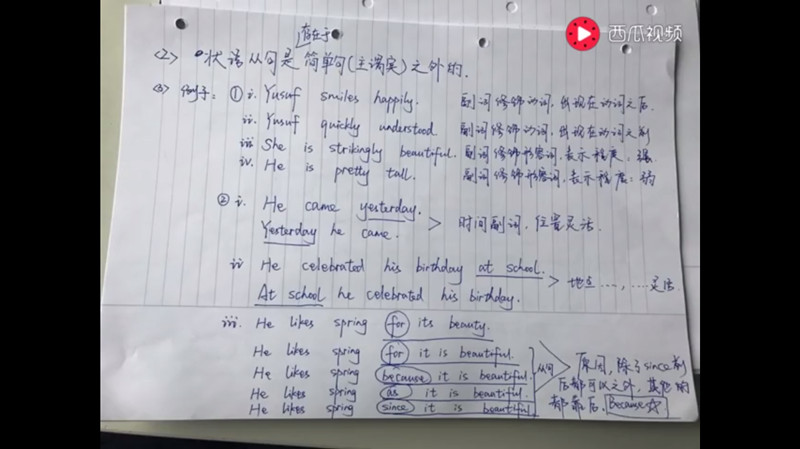 西瓜视频
存在于
<2> 状语从句是简单句(主谓宾)之外的.
<3> 例子: ① i. Yusuf smiles happily. 副词修饰动词, 出现在动词之后.
ii. Yusuf quickly understood. 副词修饰动词, 出现在动词之前
iii She is strikingly beautiful. 副词修饰形容词, 表示程度: 强
iv. He is pretty tall. 副词修饰形容词, 表示程度: 弱
② i. He came yesterday.
Yesterday he came. > 时间副词, 位置灵活.
ii He celebrated his birthday at school.
At school he celebrated his birthday. > 地点……, …灵活.
iii. He likes spring for its beauty.
He likes spring for it is beautiful.
He likes spring because it is beautiful.
He likes spring as it is beautiful.
He likes spring since it is beautiful
从句
原因, 除了since前
后都可以之外, 其他的
都靠后. Because☆